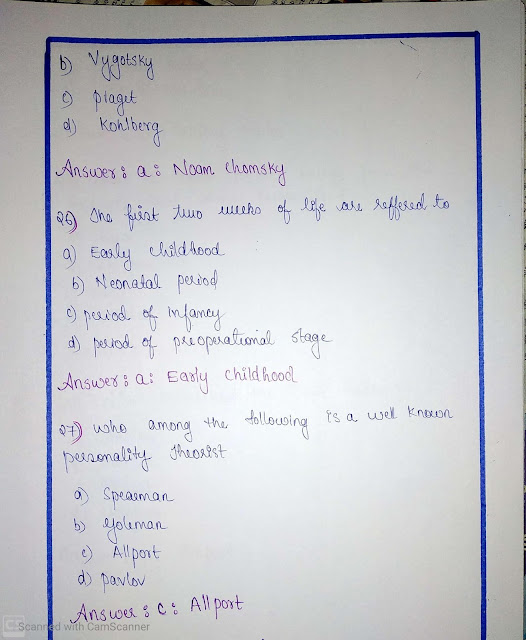 b) Vygotsky
c) piaget
d) Kohlberg
Answer : a : Noam Chomsky
26) The first two weeks of life are reffered to
a) Early childhood
b) Neonatal period
c) period of infancy
d) period of preoperational stage
Answer : a : Early childhood
27) who among the following is a well known
personality theorist
a) Spearman
b) Goleman
c) Allport
d) pavlov
Answer : c : Allport
CS Scanned with CamScanner